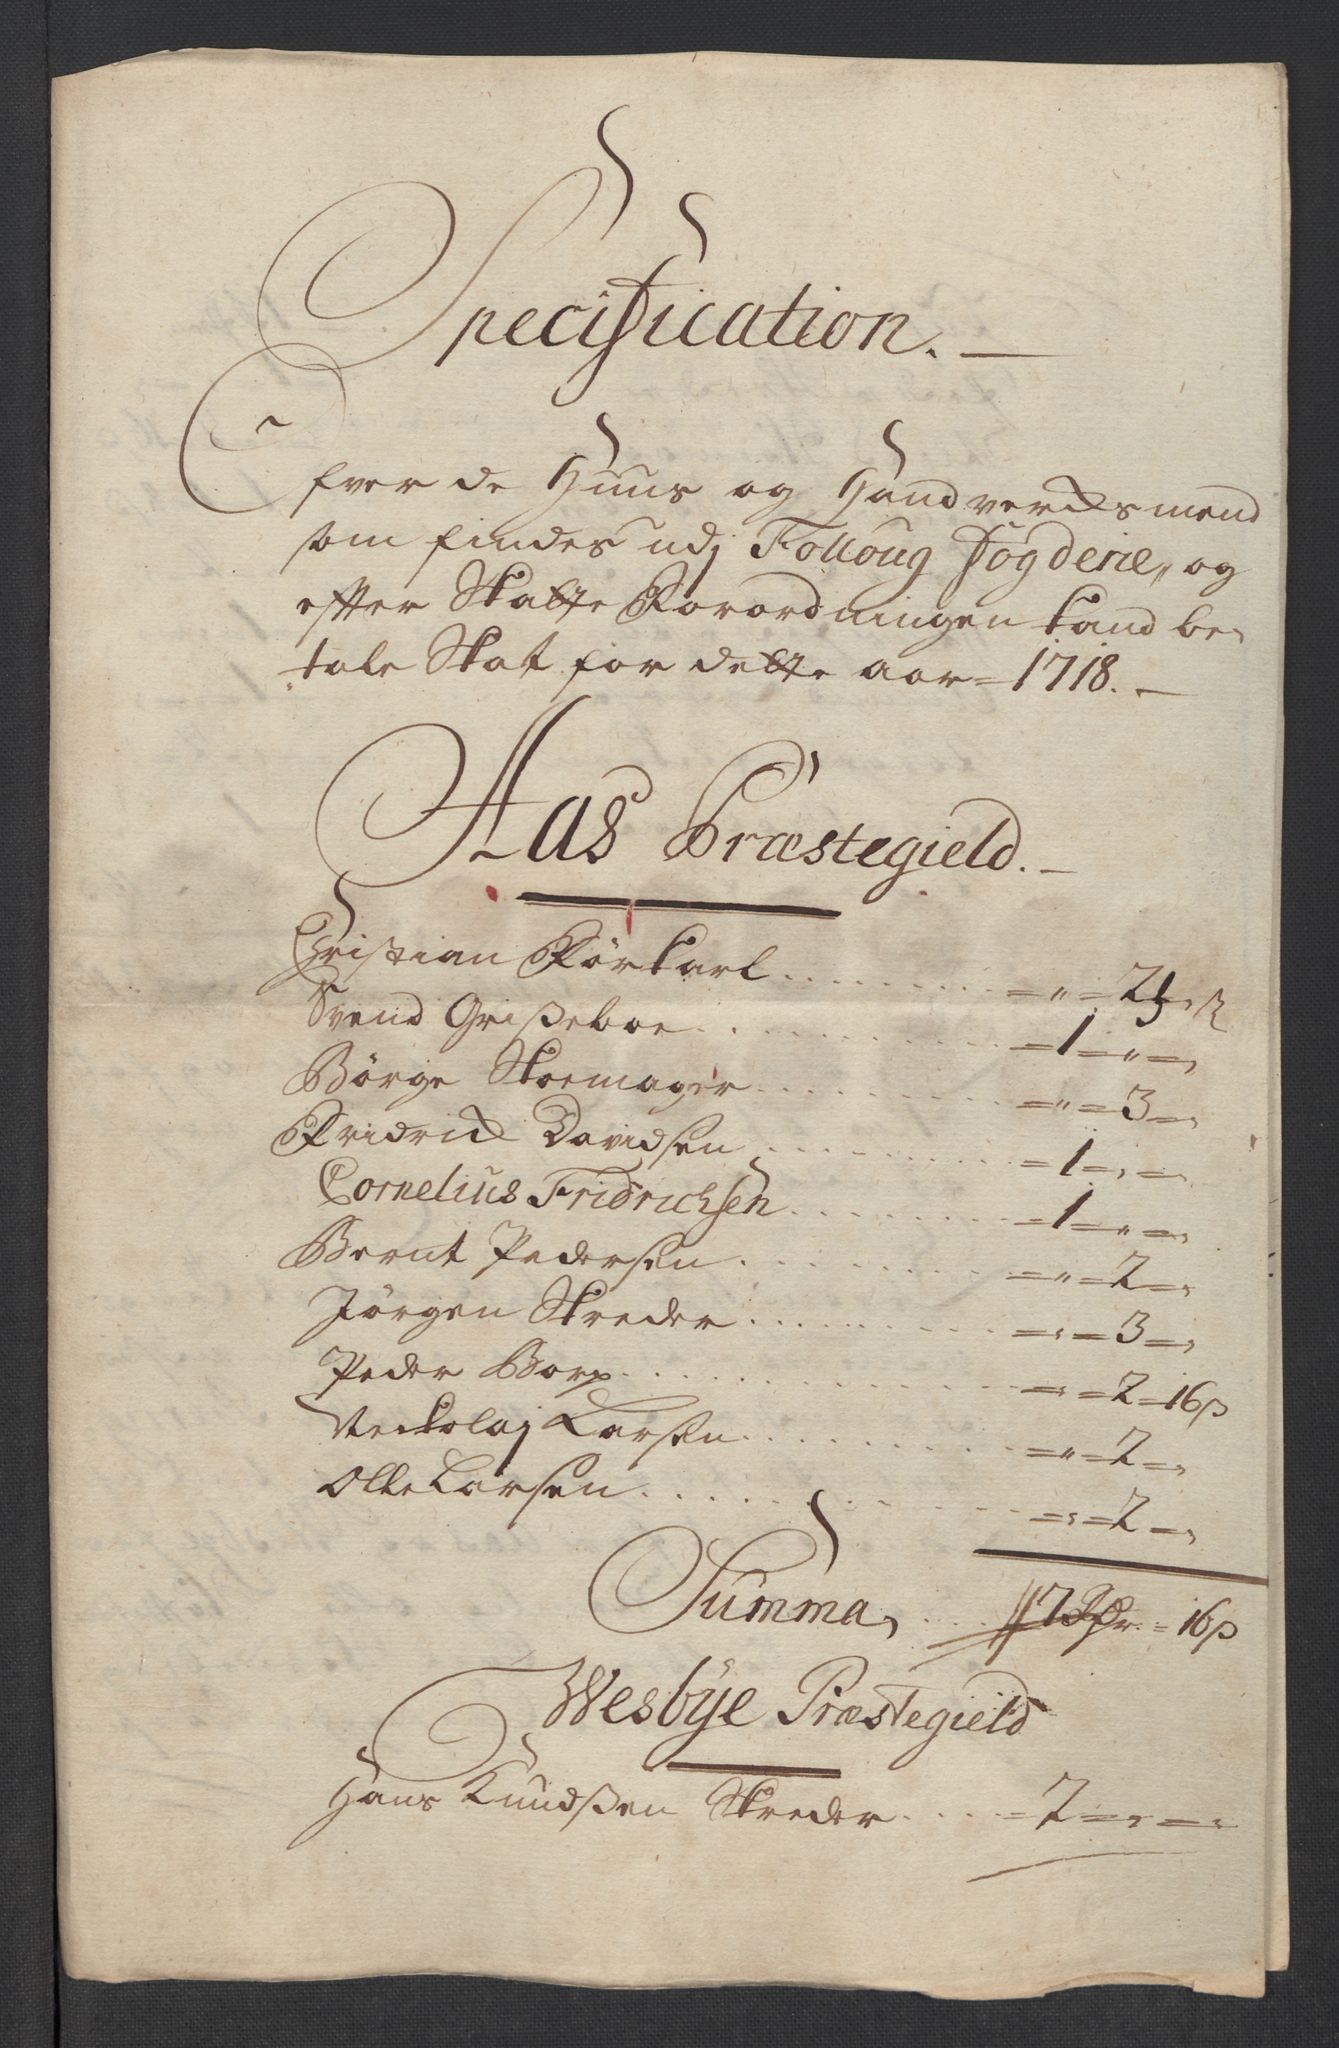 Specification.
Ofver de Huus og Handvercksmend
som findes udj Folloug Fogderie, og
efter Skatte Forordningen kand be-
tale Skat for dette aar = 1718.
Aas Præstegield.
Christian Førkarl . . . = " = 2
Svend Grisseboe . . . = 1 = " =
Börge Skoemager . . . = " = 3 =
Fridrick Davidsen . . . = 1 = " =
Cornelius Fridrichsen . . . = 1 = " =
Bernt Pedersen . . . = " = 2 =
Jörgen Skreder . . . = " = 3 =
Peder Borp . . . = " = 2 = 16 ß
Neckolaj Larsen . . . = " = 2 =
Olle Larsen . . . = " = 2 =
Summa . . . 7 = 16 ß
Wesbye Præstegield
Hans Knudssen Skreder . . . = 2 = " =